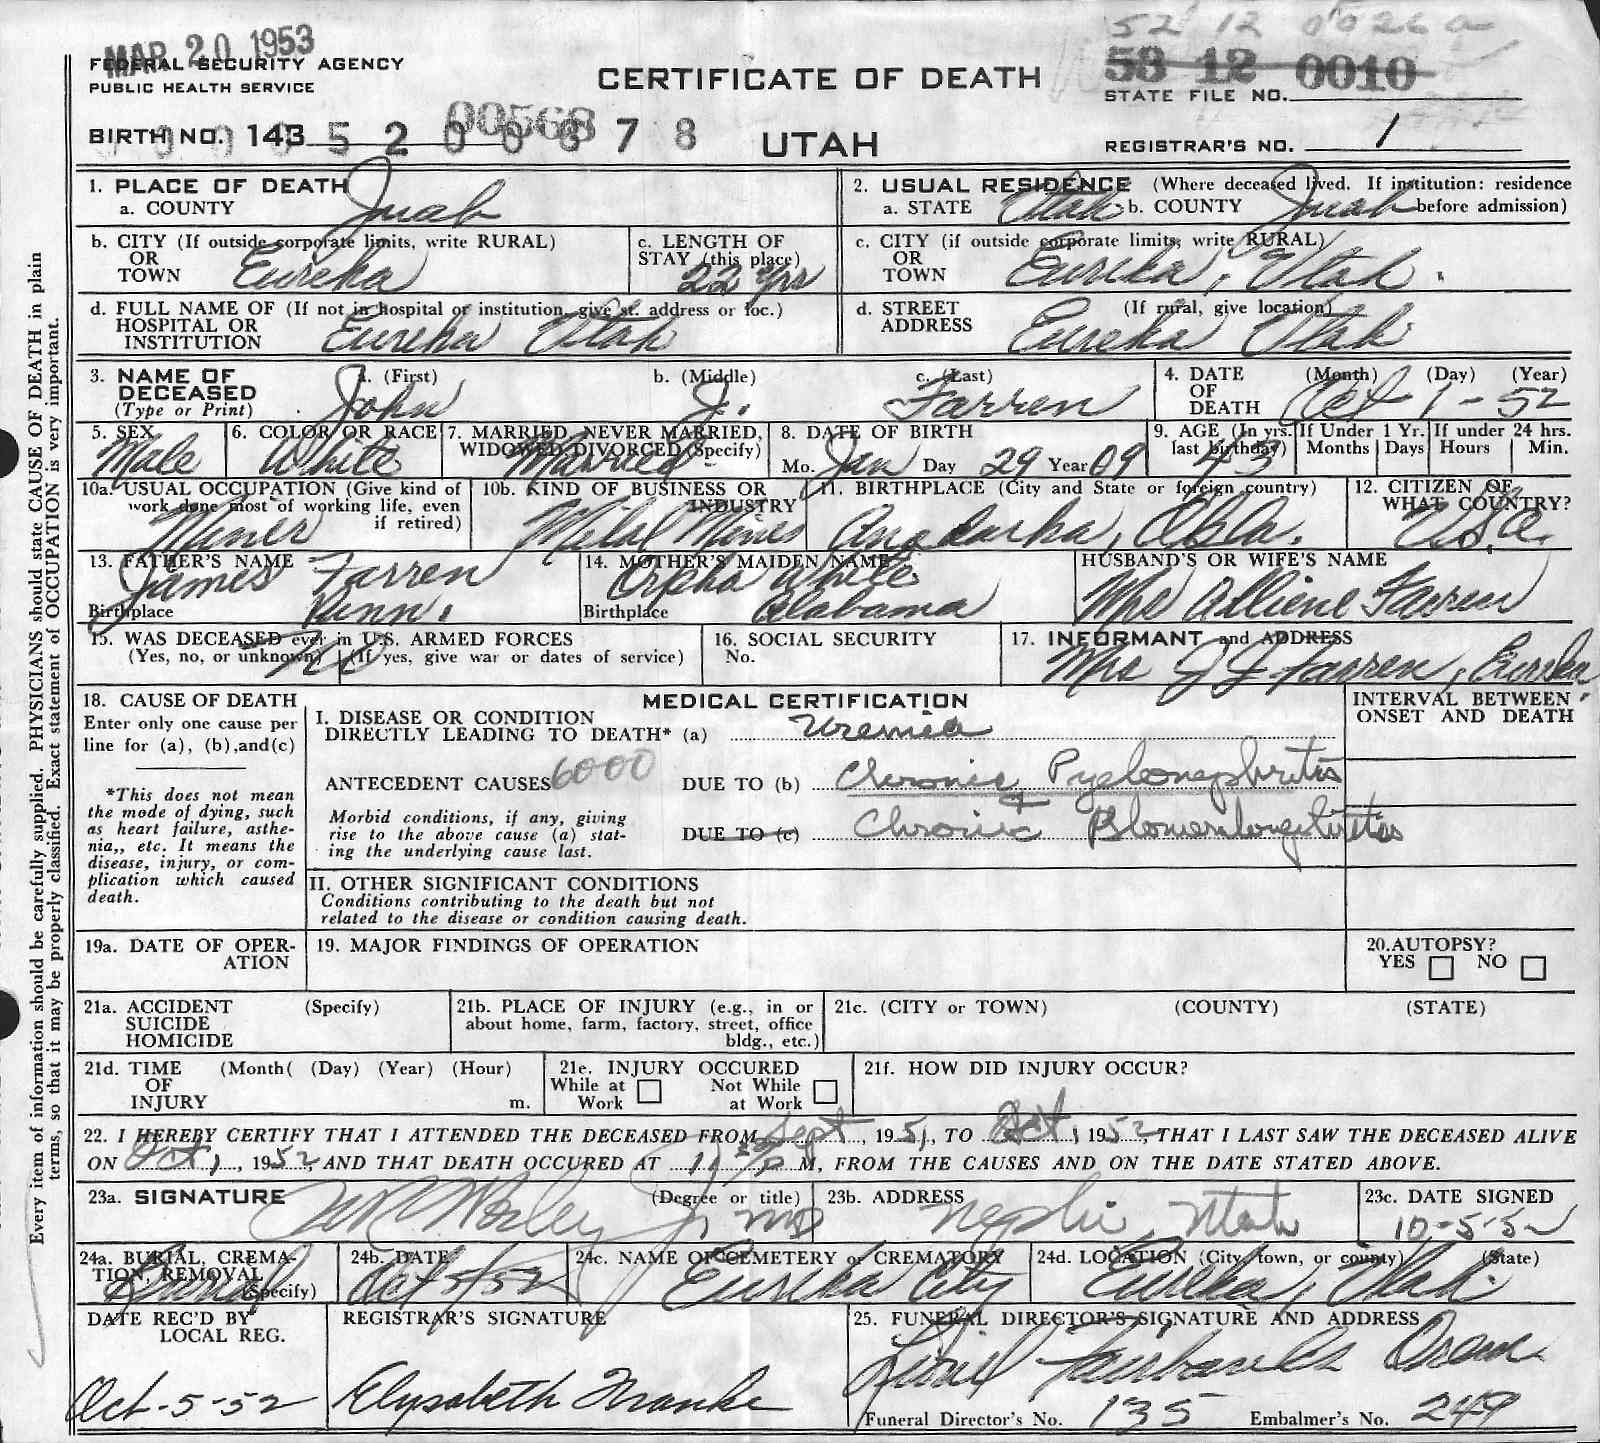 MAR 20 1953
FEDERAL SECURITY AGENCY
PUBLIC HEALTH SERVICE
CERTIFICATE OF DEATH
52 12 0026a
53 12 0010
STATE FILE NO.
BIRTH NO. 143
00568
UTAH
REGISTRAR'S NO. 1
1. PLACE OF DEATH
a. COUNTY Juab
2. USUAL RESIDENCE (Where deceased lived. If institution: residence before admission)
a. STATE Utah b. COUNTY Juab
b. CITY (If outside corporate limits, write RURAL)
OR
TOWN Eureka
c. LENGTH OF
STAY (this place)
22 yrs
c. CITY (if outside corporate limits, write RURAL)
OR
TOWN Eureka, Utah.
d. FULL NAME OF (If not in hospital or institution, give st. address or loc.)
HOSPITAL OR
INSTITUTION Eureka Utah
d. STREET (If rural, give location)
ADDRESS Eureka Utah
3. NAME OF
DECEASED
(Type or Print)
a. (First) John
b. (Middle) J.
c. (Last) Farren
4. DATE
OF
DEATH
(Month) (Day) (Year)
Oct 1-52
5. SEX
Male
6. COLOR OR RACE
White
7. MARRIED, NEVER MARRIED,
WIDOWED, DIVORCED (Specify)
Married
8. DATE OF BIRTH
Mo. Jan Day 29 Year 09
9. AGE (In yrs. last birthday)
43
If Under 1 Yr.
Months Days
If under 24 hrs.
Hours Min.
10a. USUAL OCCUPATION (Give kind of
work done most of working life, even
if retired)
Miner
10b. KIND OF BUSINESS OR
INDUSTRY
Metal Mines
11. BIRTHPLACE (City and State or foreign country)
Anadarka, Okla.
12. CITIZEN OF
WHAT COUNTRY?
U.S.A.
13. FATHER'S NAME
James Farren
Birthplace Penn.
14. MOTHER'S MAIDEN NAME
Orpha White
Birthplace Alabama
HUSBAND'S OR WIFE'S NAME
Mrs Alliene Farren
15. WAS DECEASED ever in U.S. ARMED FORCES
(Yes, no, or unknown) (If yes, give war or dates of service)
No
16. SOCIAL SECURITY
No.
17. INFORMANT and ADDRESS
Mrs J J Farren, Eureka
18. CAUSE OF DEATH
Enter only one cause per
line for (a), (b), and (c)
*This does not mean
the mode of dying, such
as heart failure, asthe-
nia,, etc. It means the
disease, injury, or com-
plication which caused
death.
MEDICAL CERTIFICATION
INTERVAL BETWEEN
ONSET AND DEATH
I. DISEASE OR CONDITION
DIRECTLY LEADING TO DEATH* (a) Uremia
ANTECEDENT CAUSES 6000
DUE TO (b) Chronic Pyelonephritis
+
Morbid conditions, if any, giving
rise to the above cause (a) stat-
ing the underlying cause last.
DUE TO (c) Chronic
II. OTHER SIGNIFICANT CONDITIONS
Conditions contributing to the death but not
related to the disease or condition causing death.
19a. DATE OF OPER-
ATION
19. MAJOR FINDINGS OF OPERATION
20. AUTOPSY?
YES NO
21a. ACCIDENT (Specify)
SUICIDE
HOMICIDE
21b. PLACE OF INJURY (e.g., in or
about home, farm, factory, street, office
bldg., etc.)
21c. (CITY or TOWN) (COUNTY) (STATE)
21d. TIME (Month( (Day) (Year) (Hour)
OF
INJURY m.
21e. INJURY OCCURED
While at Work
Not While at Work
21f. HOW DID INJURY OCCUR?
22. I HEREBY CERTIFY THAT I ATTENDED THE DECEASED FROM Sept, 1951, TO Oct 1, 1952, THAT I LAST SAW THE DECEASED ALIVE
ON Oct 1, 1952, AND THAT DEATH OCCURED AT 11 P M, FROM THE CAUSES AND ON THE DATE STATED ABOVE.
23a. SIGNATURE (Degree or title)
Jr MD
23b. ADDRESS
Nephi, Utah
23c. DATE SIGNED
10-5-52
24a. BURIAL, CREMA-
TION, REMOVAL
(Specify)
Burial
24b. DATE
Oct 5/52
24c. NAME OF CEMETERY or CREMATORY
Eureka City
24d. LOCATION (City, town, or county) (State)
Eureka, Utah.
DATE REC'D BY
LOCAL REG.
Oct-5-52
REGISTRAR'S SIGNATURE
Elysabeth Franke
25. FUNERAL DIRECTOR'S SIGNATURE AND ADDRESS
Fairbanks Orem
Funeral Director's No. 135 Embalmer's No. 249
Every item of information should be carefully supplied. PHYSICIANS should state CAUSE OF DEATH in plain
terms, so that it may be properly classified. Exact statement of OCCUPATION is very important.